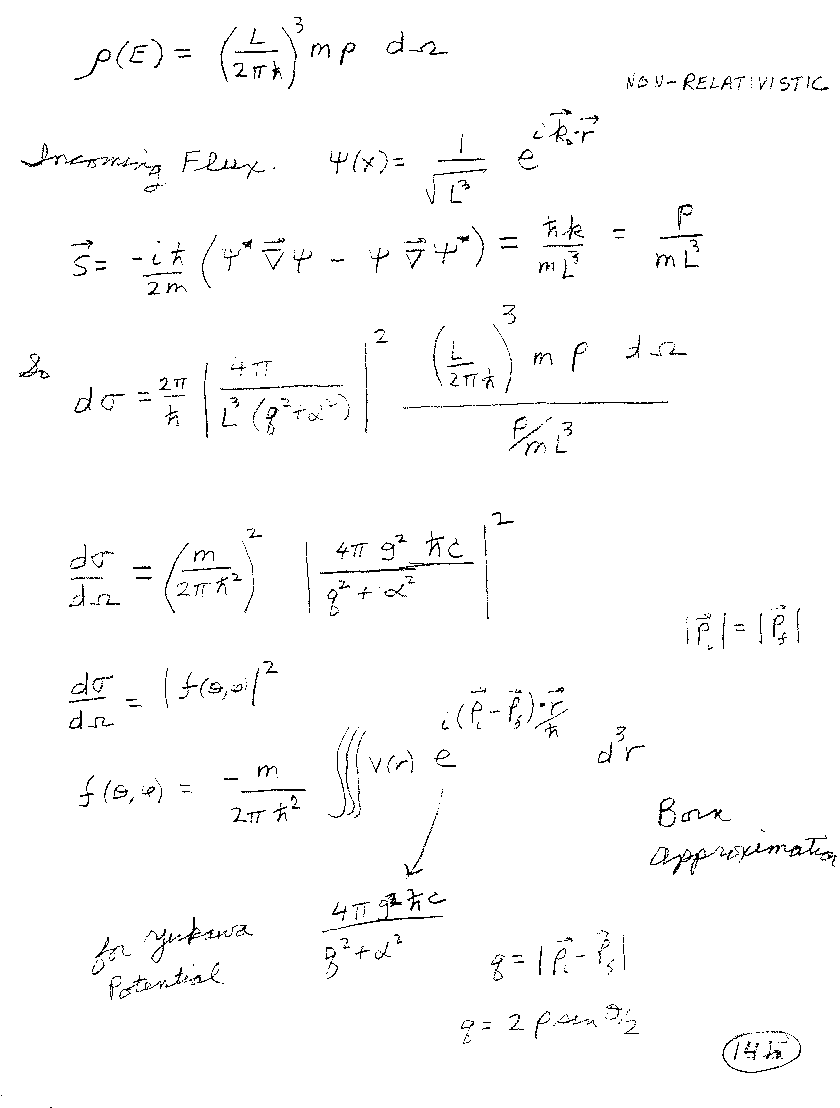 ρ(E) = (L/2πħ)³ m p dΩ
NON-RELATIVISTIC
Incoming Flux. ψ(x) = 1/√L³ e^{i k⃗₀·r⃗}
S⃗ = -iħ/2m (ψ* ∇⃗ψ - ψ ∇⃗ψ*) = ħk/mL³ = p/mL³
So dσ = 2π/ħ |4π/L³(q²+α²)|² (L/2πħ)³ m p dΩ / (p/mL³)
dσ/dΩ = (m/2πħ²)² |4π g² ħc/q²+α²|²
|p⃗ᵢ| = |p⃗_f|
dσ/dΩ = |f(θ,φ)|²
f(θ,φ) = -m/2πħ² ∭ V(r) e^{i(p⃗ᵢ-p⃗_f)·r⃗/ħ} d³r
Born
approximation
for Yukawa
Potential
4π g² ħc/q²+α²
q = |p⃗ᵢ - p⃗_f|
q = 2 p sin θ/2